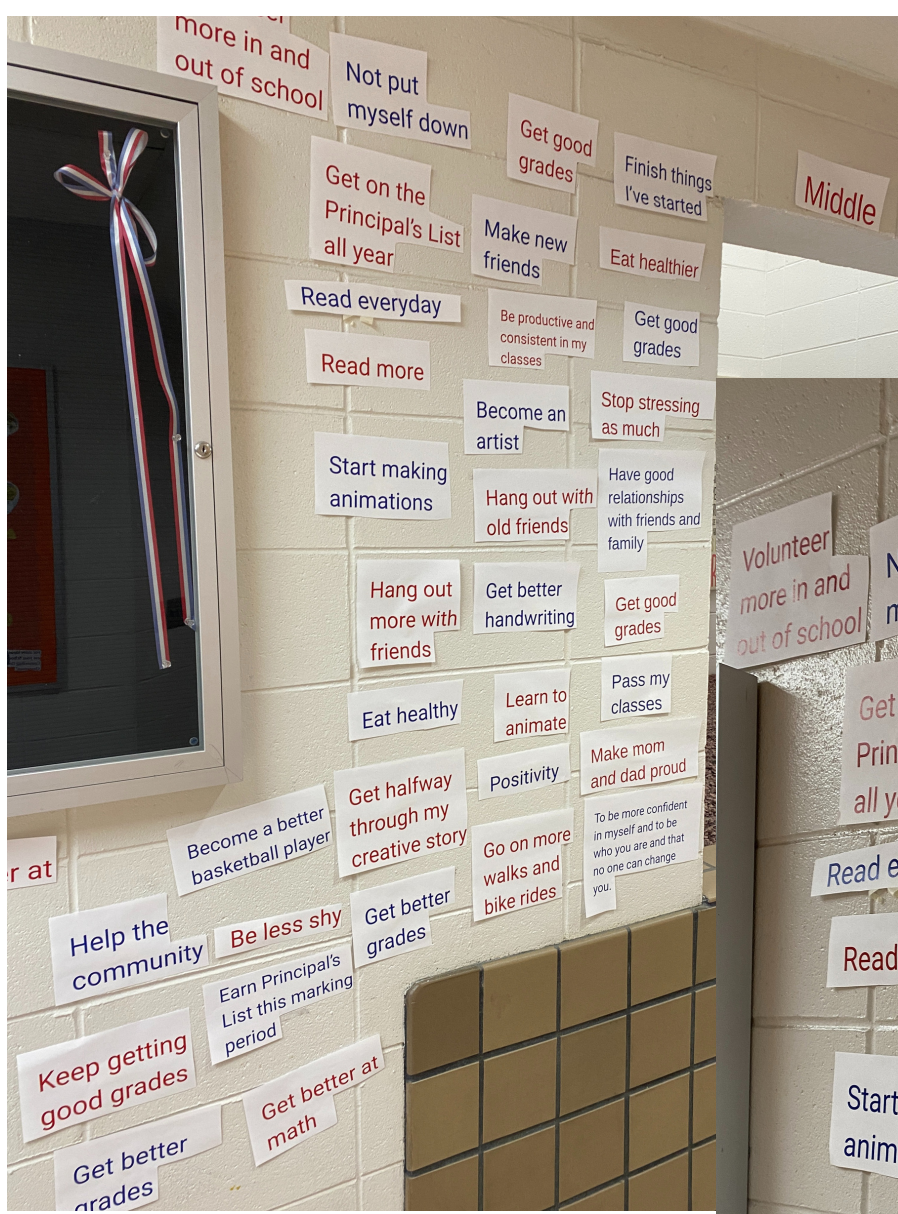 more in and
out of school
Not put
myself down
Get good
grades
Finish things
I've started
Middle
Get on the
Principal's List
all year
Make new
friends
Eat healthier
Read everyday
Be productive and
consistent in my
classes
Get good
grades
Read more
Become an
artist
Stop stressing
as much
Start making
animations
Hang out with
old friends
Have good
relationships
with friends and
family
Hang out
more with
friends
Get better
handwriting
Get good
grades
Eat healthy
Learn to
animate
Pass my
classes
Get halfway
through my
creative story
Positivity
Make mom
and dad proud
Become a better
basketball player
Go on more
walks and
bike rides
To be more confident
in myself and to be
who you are and that
no one can change
you.
at
Help the
community
Be less shy
Get better
grades
Earn Principal's
List this marking
period
Keep getting
good grades
Get better at
math
Get better
grades
Volunteer
more in and
out of school
Get
all
Read
Read
Start